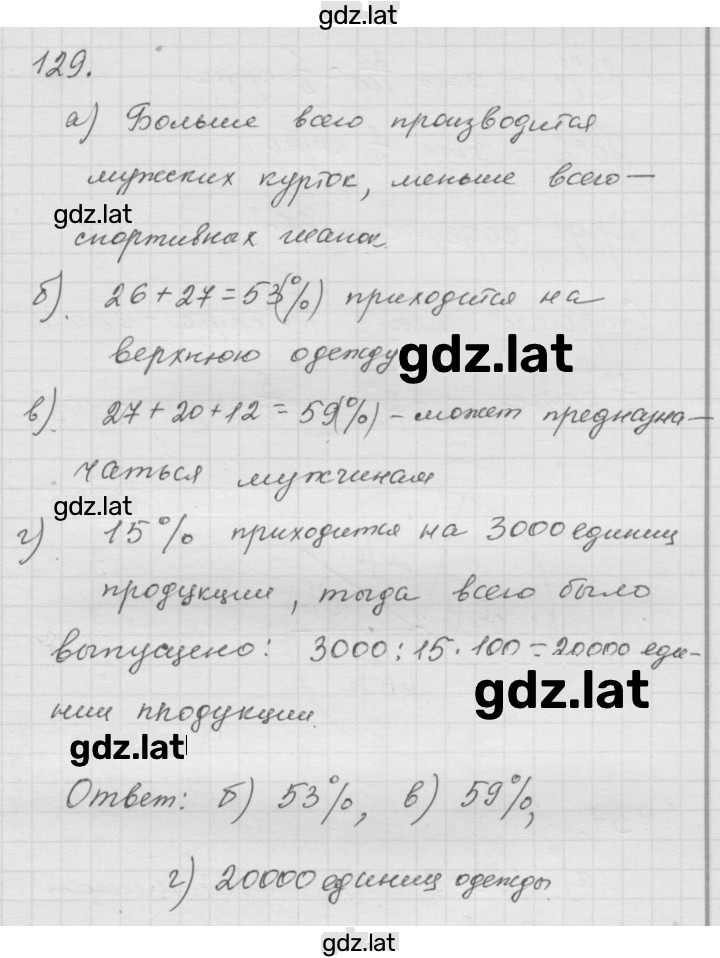 gdz.lat
129.
а) Больше всего производится
мужских курток, меньше всего —
gdz.lat
спортивных шапок.
б). 26 + 27 = 53(%) приходится на
верхнюю одежду gdz.lat
в). 27 + 20 + 12 = 59(%) - может предназна-
чаться мужчинам
gdz.lat
г) 15% приходится на 3000 единиц
продукции, тогда всего было
выпущено: 3000 : 15 · 100 = 20000 еди-
gdz.lat
ниц продукции.
gdz.lat
Ответ: б) 53%, в) 59%,
г) 20000 единиц одежды
gdz.lat